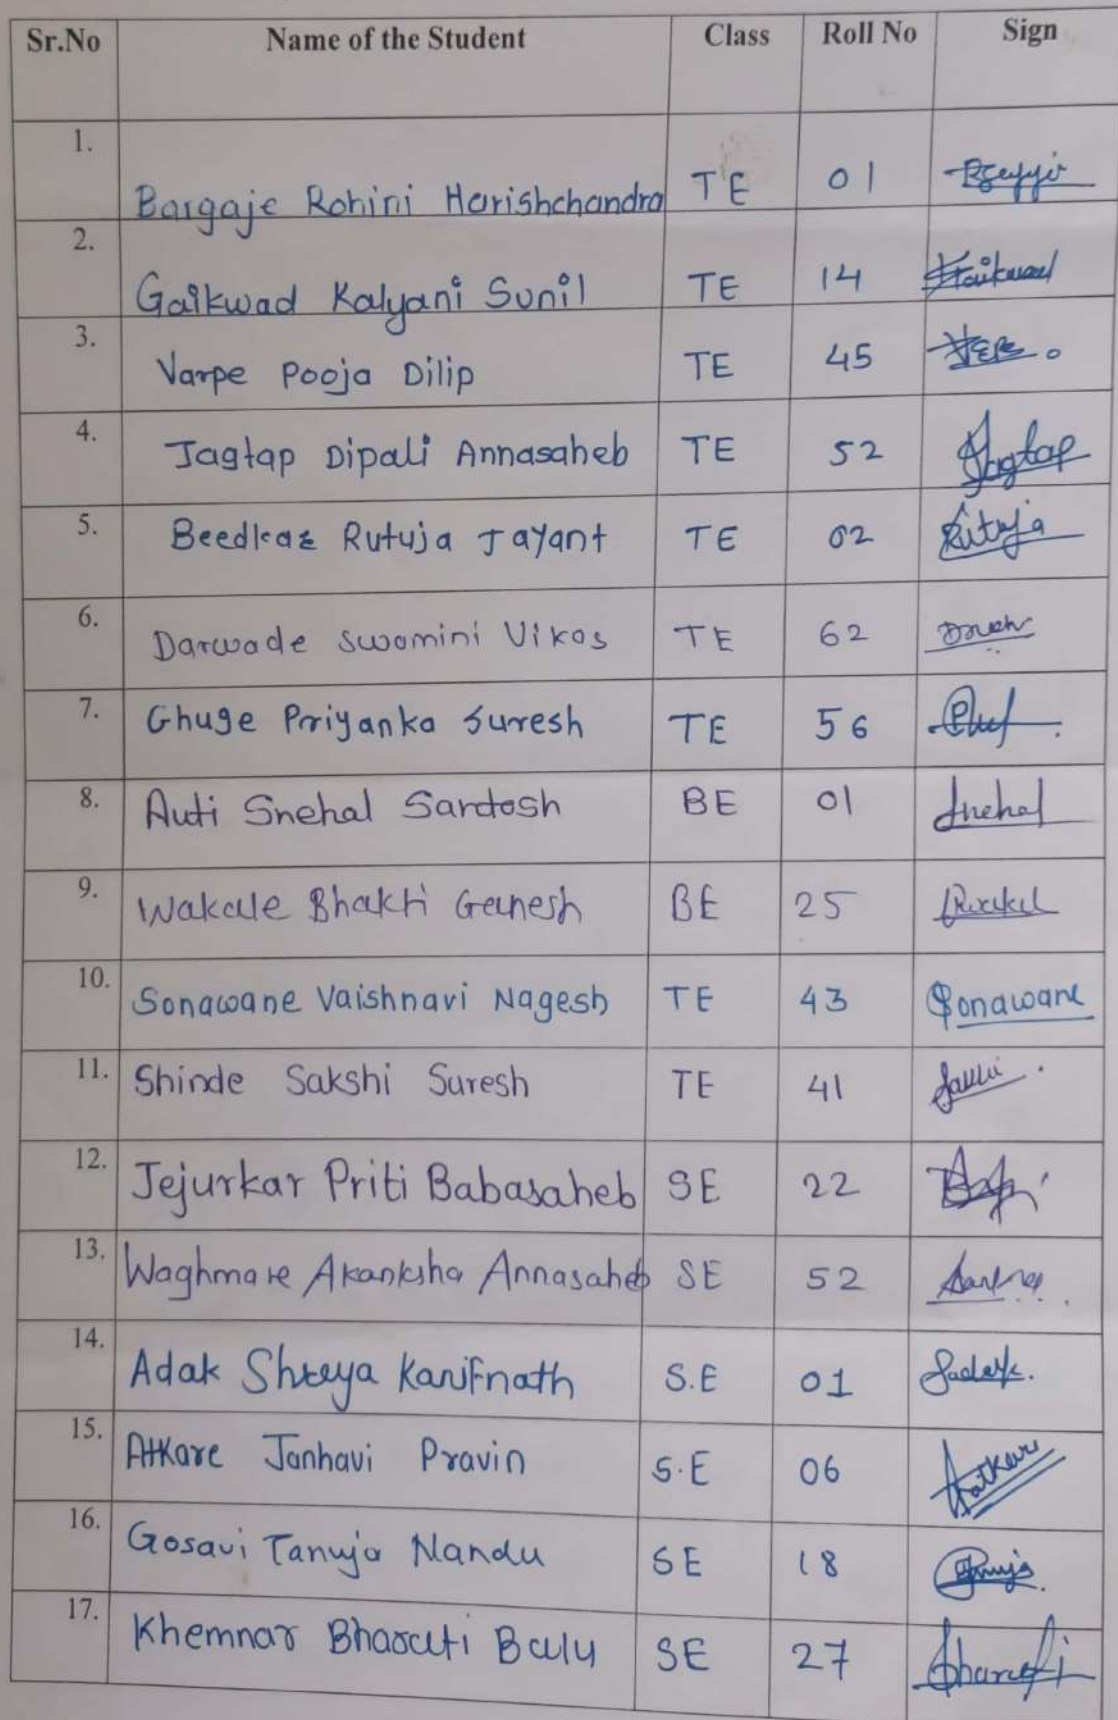 Sr.No Name of the Student Class Roll No Sign
1. Bargaje Rohini Harishchandra TE 01
2. Gaikwad Kalyani Sunil TE 14 Gaikwad
3. Varpe Pooja Dilip TE 45
4. Jagtap Dipali Annasaheb TE 52 Jagtap
5. Beedkar Rutuja Jayant TE 02 Rutuja
6. Darwade Swamini Vikas TE 62
7. Ghuge Priyanka Suresh TE 56
8. Auti Snehal Santosh BE 01 Snehal
9. Wakale Bhakti Ganesh BE 25
10. Sonawane Vaishnavi Nagesh TE 43 Sonawane
11. Shinde Sakshi Suresh TE 41
12. Jejurkar Priti Babasaheb SE 22
13. Waghmare Akanksha Annasaheb SE 52
14. Adak Shreya Kanifnath S.E 01
15. Atkare Janhavi Pravin S.E 06
16. Gosavi Tanuja Nandu SE 18
17. Khemnar Bharati Balu SE 27 Bharati